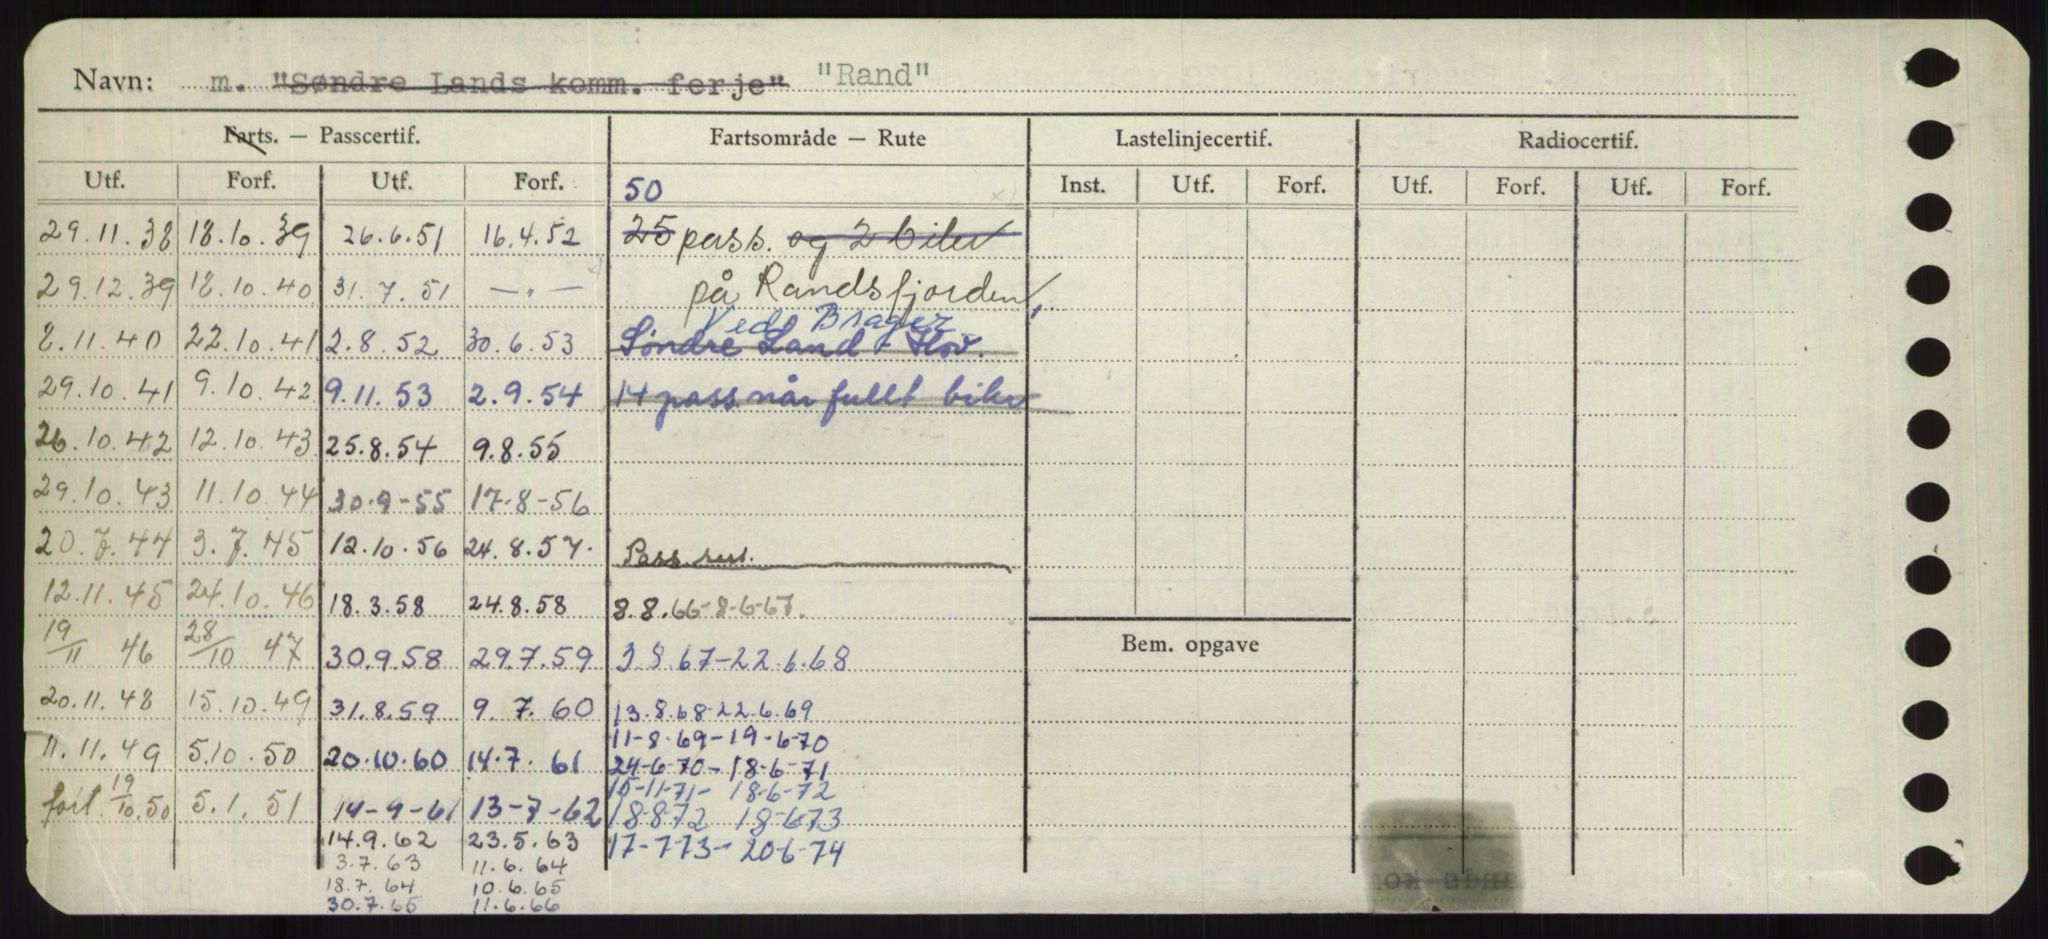 Navn: m. "Søndre Lands komm. ferje" "Rand"
Farts. — Passcertif. Fartsområde — Rute Lastelinjecertif. Radiocertif.
Utf. Forf. Utf. Forf. 50 Inst. Utf. Forf. Utf. Forf. Utf. Forf.
29.11.38 18.10.39 26.6.51 16.4.52 25 pass. og 2 biler
29.12.39 18.10.40 31.7.51 — " — på Randsfjorden
Ved Brager
8.11.40 22.10.41 2.8.52 30.6.53 Søndre Land - Hov.
29.10.41 9.10.42 9.11.53 2.9.54 14 pass når fullt biler
26.10.42 12.10.43 25.8.54 9.8.55
29.10.43 11.10.44 30.9-55 17-8-56
20.7.44 3.7.45 12.10.56 24.8.57. Pass. sert.
12.11.45 24.10.46 18.3.58 24.8.58 8.8.66-8-6-67.
19/11 46 28/10 47 30.9.58 29.7.59 3 8 67-22.6.68
20.11.48 15.10.49 31.8.59 9.7.60 13.8.68-22.6.69
11-8-69-19-6-70
11.11.49 5.10.50 20.10.60 14.7.61 24-6-70-18-6-71
15-11-71- 18-6-72
forl. 19/10.50 5.1.51 14-9-61 13-7-62 18-8-72 18-6-73
14.9.62 23.5.63 17-7-73- 20-6-74
3.7.63 11.6.64
18.7.64 10.6.65
30.7.65 11.6.66
Bem. opgave